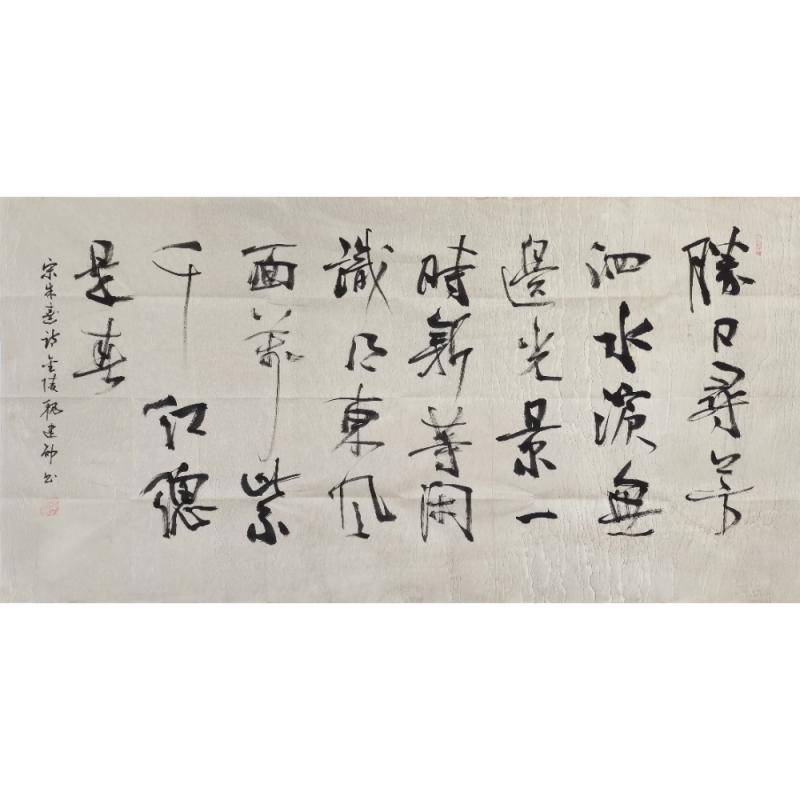 勝日尋芳
泗水濱無
邊光景一
時新等閑
識得東風
面萬紫
千紅總
是春
宋朱熹詩金陵建邺書